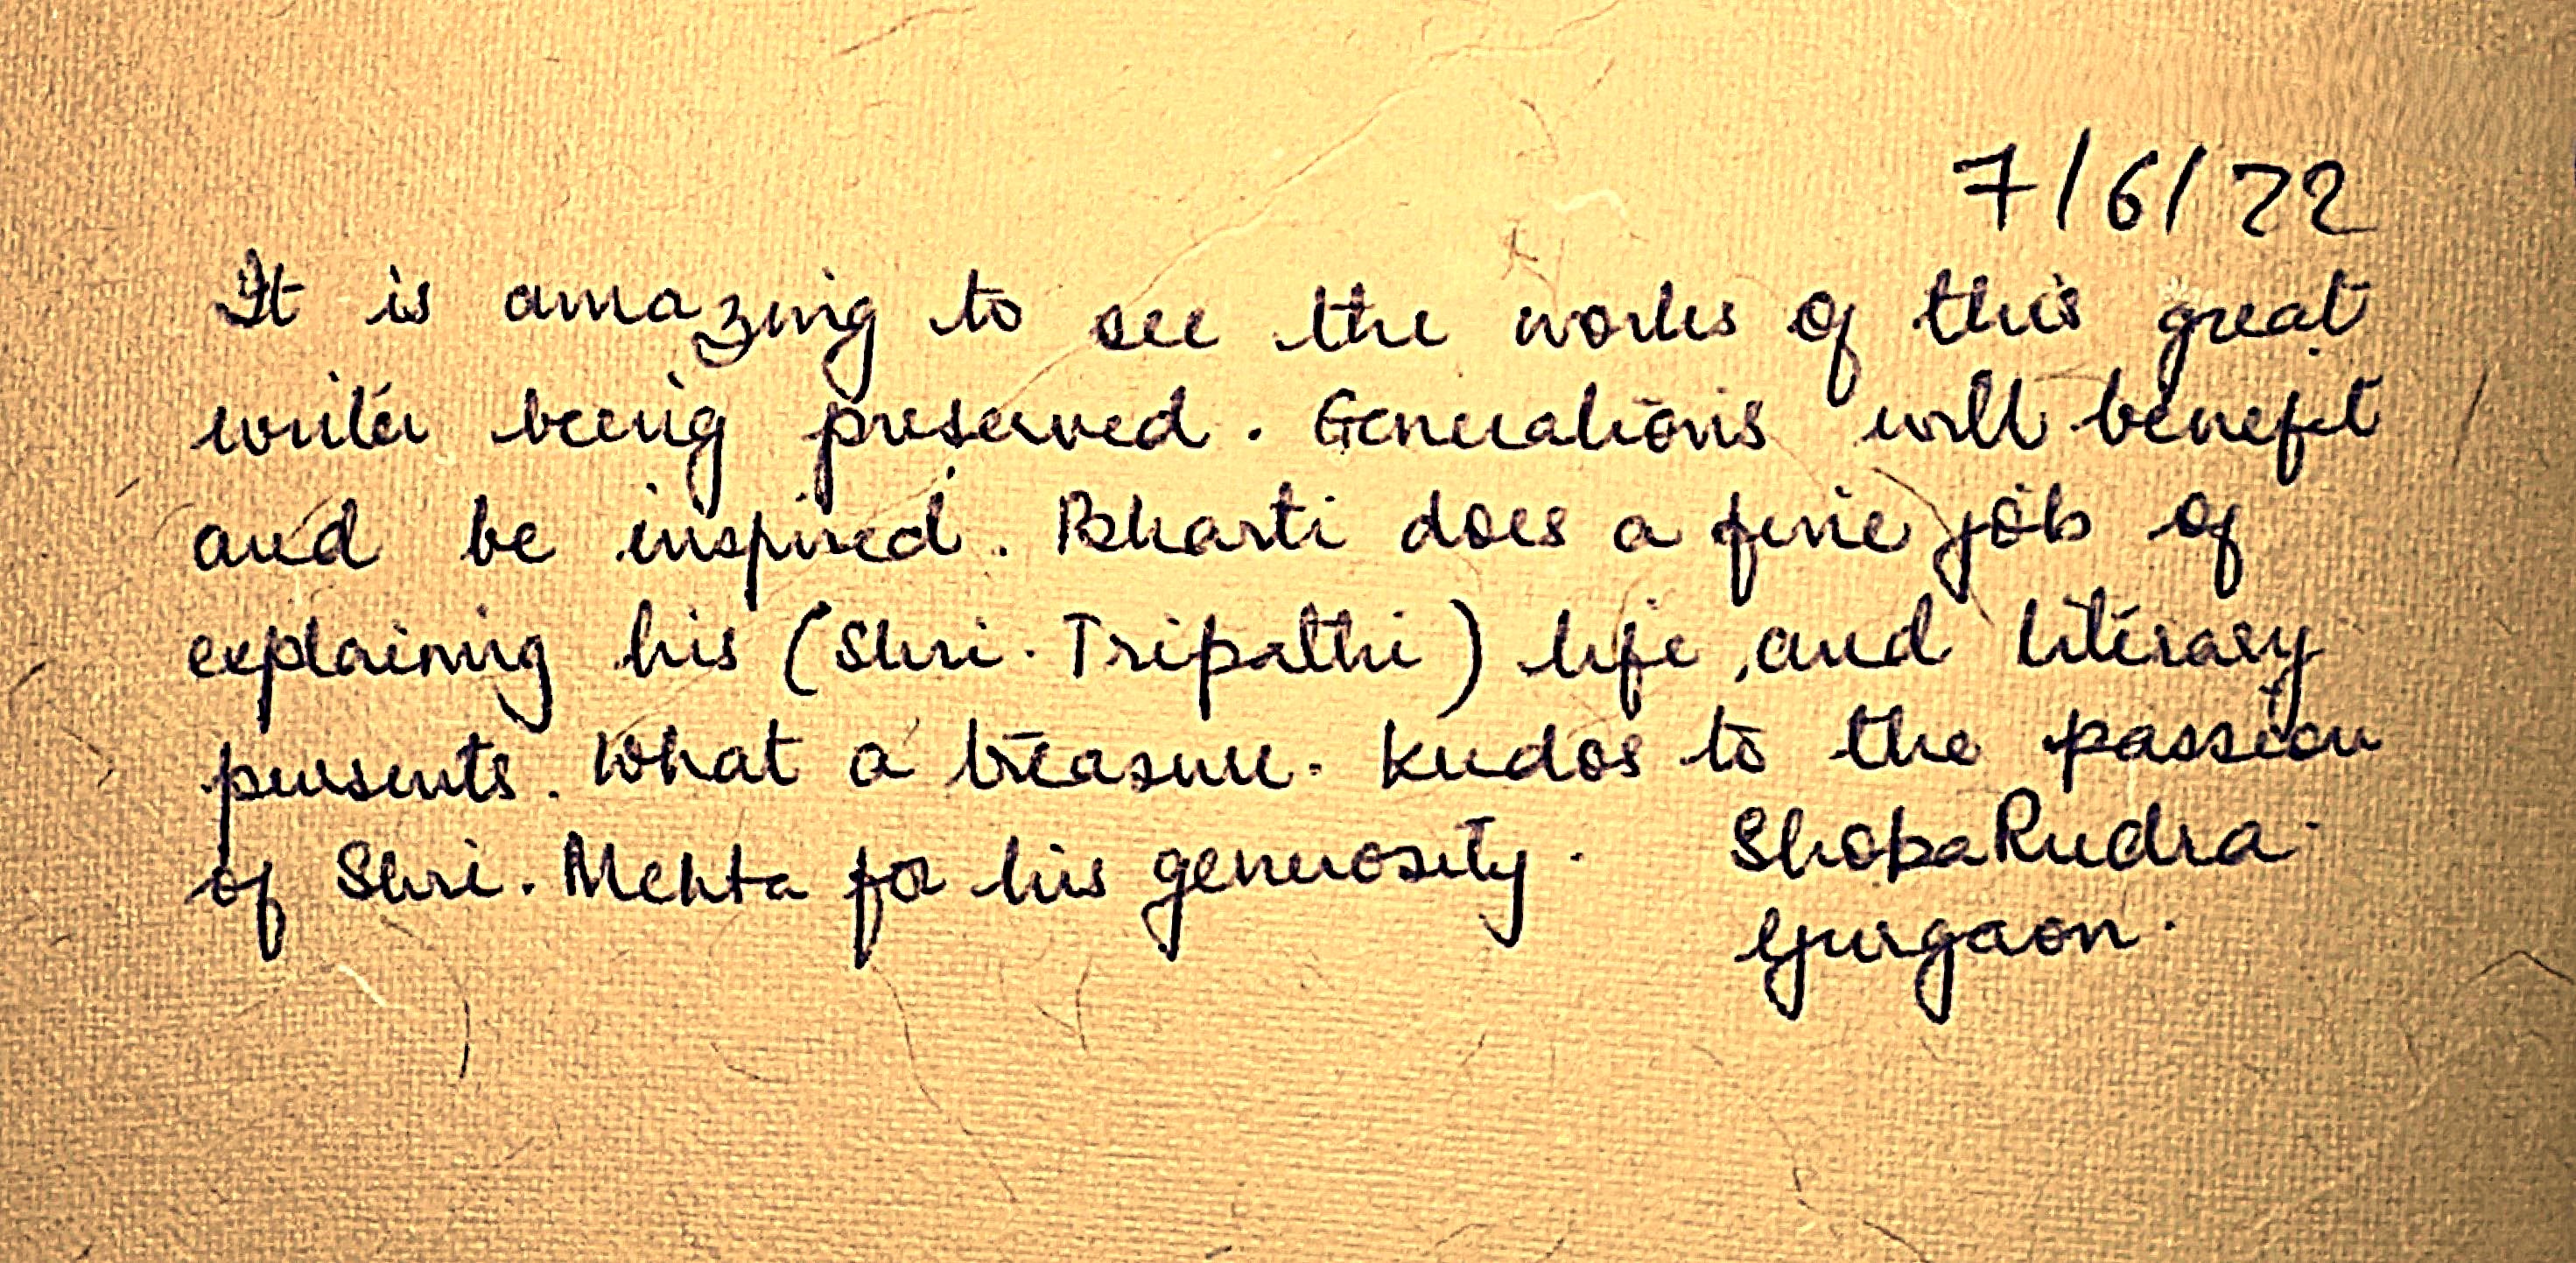 7/6/22
It is amazing to see the works of this great
writer being preserved. Generations will benefit
and be inspired. Bharti does a fine job of
explaining his (Shri. Tripathi) life, and literary
pursuits. What a treasure. Kudos to the passion
of Shri. Mehta for his generosity. Shoba Rudra.
Gurgaon.